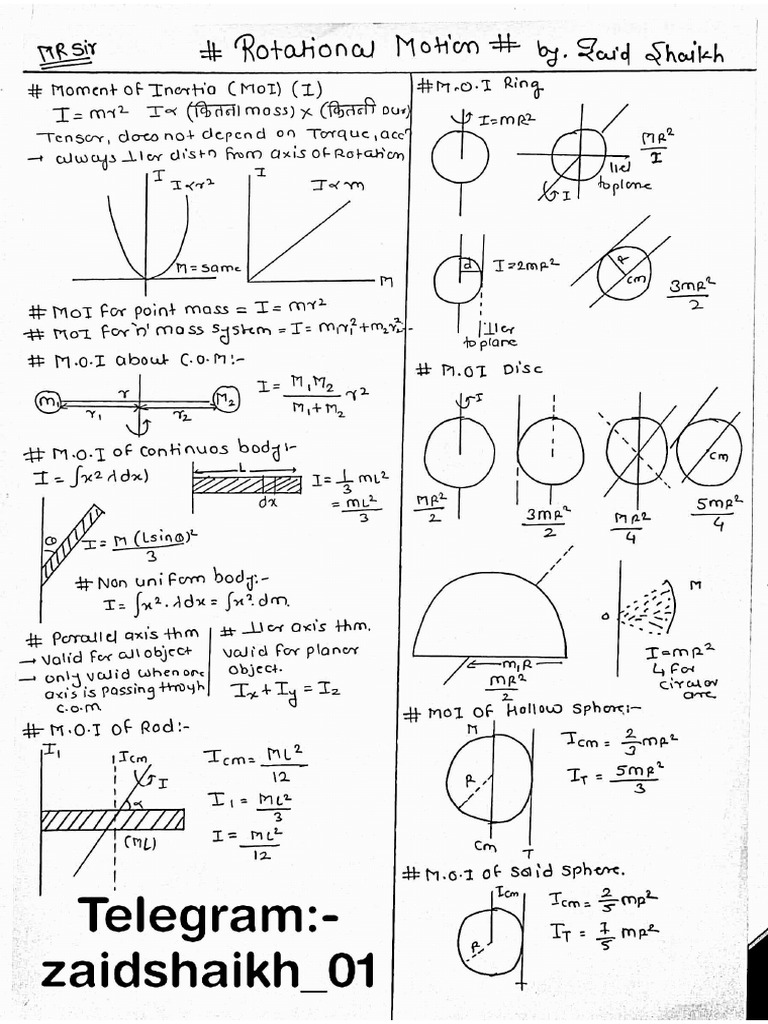 MR Sir
# Rotational Motion # by. Zaid Shaikh
# Moment of Inertia (MOI) (I)
I = mr² I∝ (कितना mass) × (कितनी dur)
Tensor, does not depend on Torque, accⁿ
→ always ⊥ler distn from axis of Rotation
I I∝r² I I∝m
M = same M
# MOI for point mass = I = mr²
# MOI for 'n' mass system = I = m₁r₁² + m₂r₂²--
# M.O.I about C.O.M:-
m₁ r M₂
r₁ r₂
I = M₁M₂/M₁+M₂ r²
# M.O.I of continuos body:-
I = ∫x² λdx)
L
dx
I = 1/3 mL²
= mL²/3
θ
I = M(Lsinθ)²/3
# Non uniform body:-
I = ∫x². λdx = ∫x². dm.
# Parallel axis thm
→ Valid for all object
→ only valid when one
axis is passing throygh
C.O.M
# ⊥ler axis thm.
valid for planer
object.
Ix + Iy = Iz
# M.O.I of Rod:-
I₁ Icm
I
α
(M,L)
Icm = ML²/12
I₁ = ML²/3
I = ML²/12
Telegram:-
zaidshaikh_01
# M.O.I Ring
I = MR²
MR²/I
llel
to plane
I
d
I = 2MR²
ller
to plane
R
cm
3MR²/2
# M.OI Disc
I
cm
MR²/2
3MR²/2
MR²/4
5MR²/4
M,R
MR²/2
M
O
I = MR²
↳ for
circular
arc
# MOI Of Hollow Sphere:-
M
R
cm
T
Icm = 2/3 MR²
I_T = 5MR²/3
# M.O.I of Solid Sphere.
Icm
R
T
Icm = 2/5 MR²
I_T = 7/5 MR²